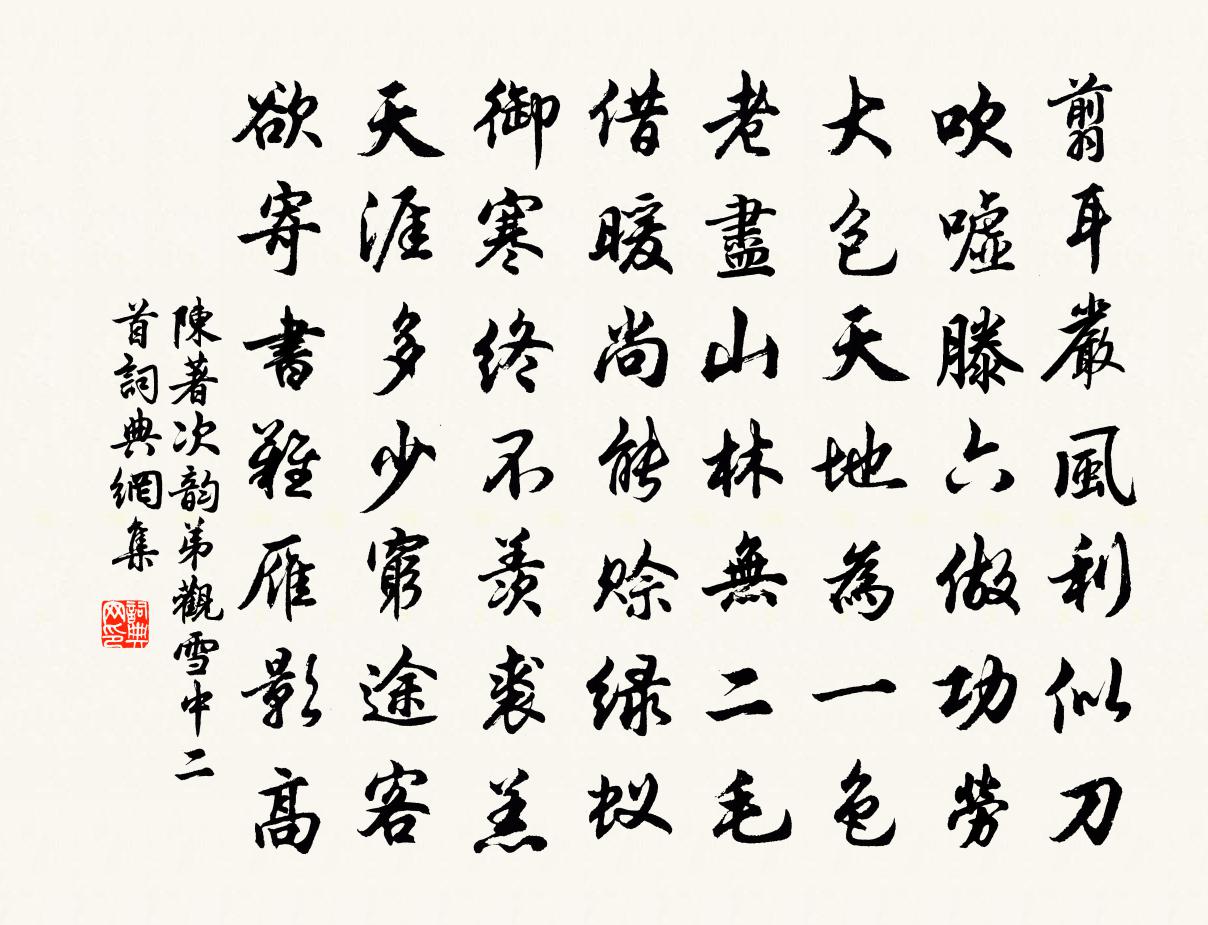 翦耳嚴風利似刀
吹噓滕六做功勞
大包天地為一色
老盡山林無二毛
借暖尚能賒緑蚁
御寒終不羨裘羔
天涯多少窮途客
欲寄書難雁影高
陳著次韵弟觀雪中二
首詞典網集
詞典
网印